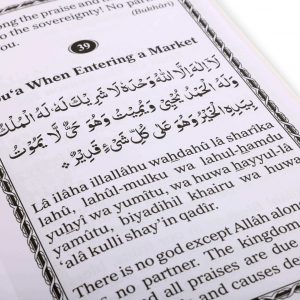 the praise and
to the sovereignty! No
you.
(Bukhârî)
39
When Entering a Market
لَا إِلٰهَ إِلَّا اللهُ وَحْدَهُ لَا شَرِيْكَ لَهُ لَهُ الْمُلْكُ
وَلَهُ الْحَمْدُ يُحْيِيْ وَيُمِيْتُ وَهُوَ حَيٌّ لَّا يَمُوْتُ
بِيَدِهِ الْخَيْرُ وَهُوَ عَلٰى كُلِّ شَيْءٍ قَدِيْرٌ
Lâ ilâha illallâhu waḥdahû lâ sharîka
lahû, lahûl-mulku wa lahul-ḥamdu
yuḥyî wa yumîtu, wa huwa ḥayyul-lâ
yamûtu, biyadihil khairu wa huwa
‘alâ kulli shay’in qadîr.
There is no god except Allâh alone
no partner. The kingdom
and all praises are due
and causes